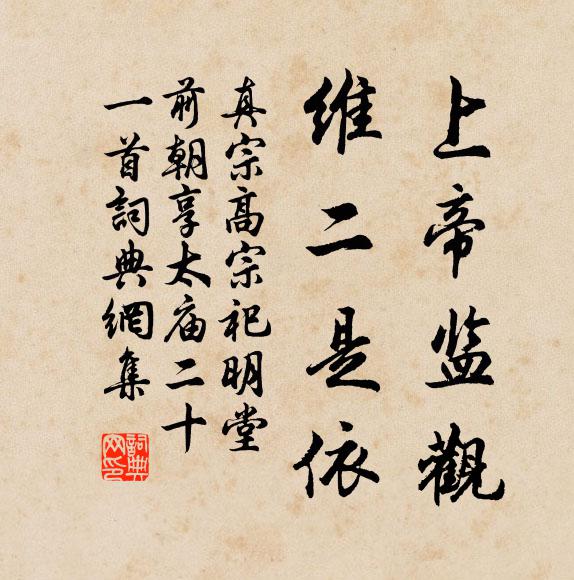 上帝监觀
维二是依
真宗高宗祀明堂
前朝享太庙二十
一首詞典網集
詞典
网印